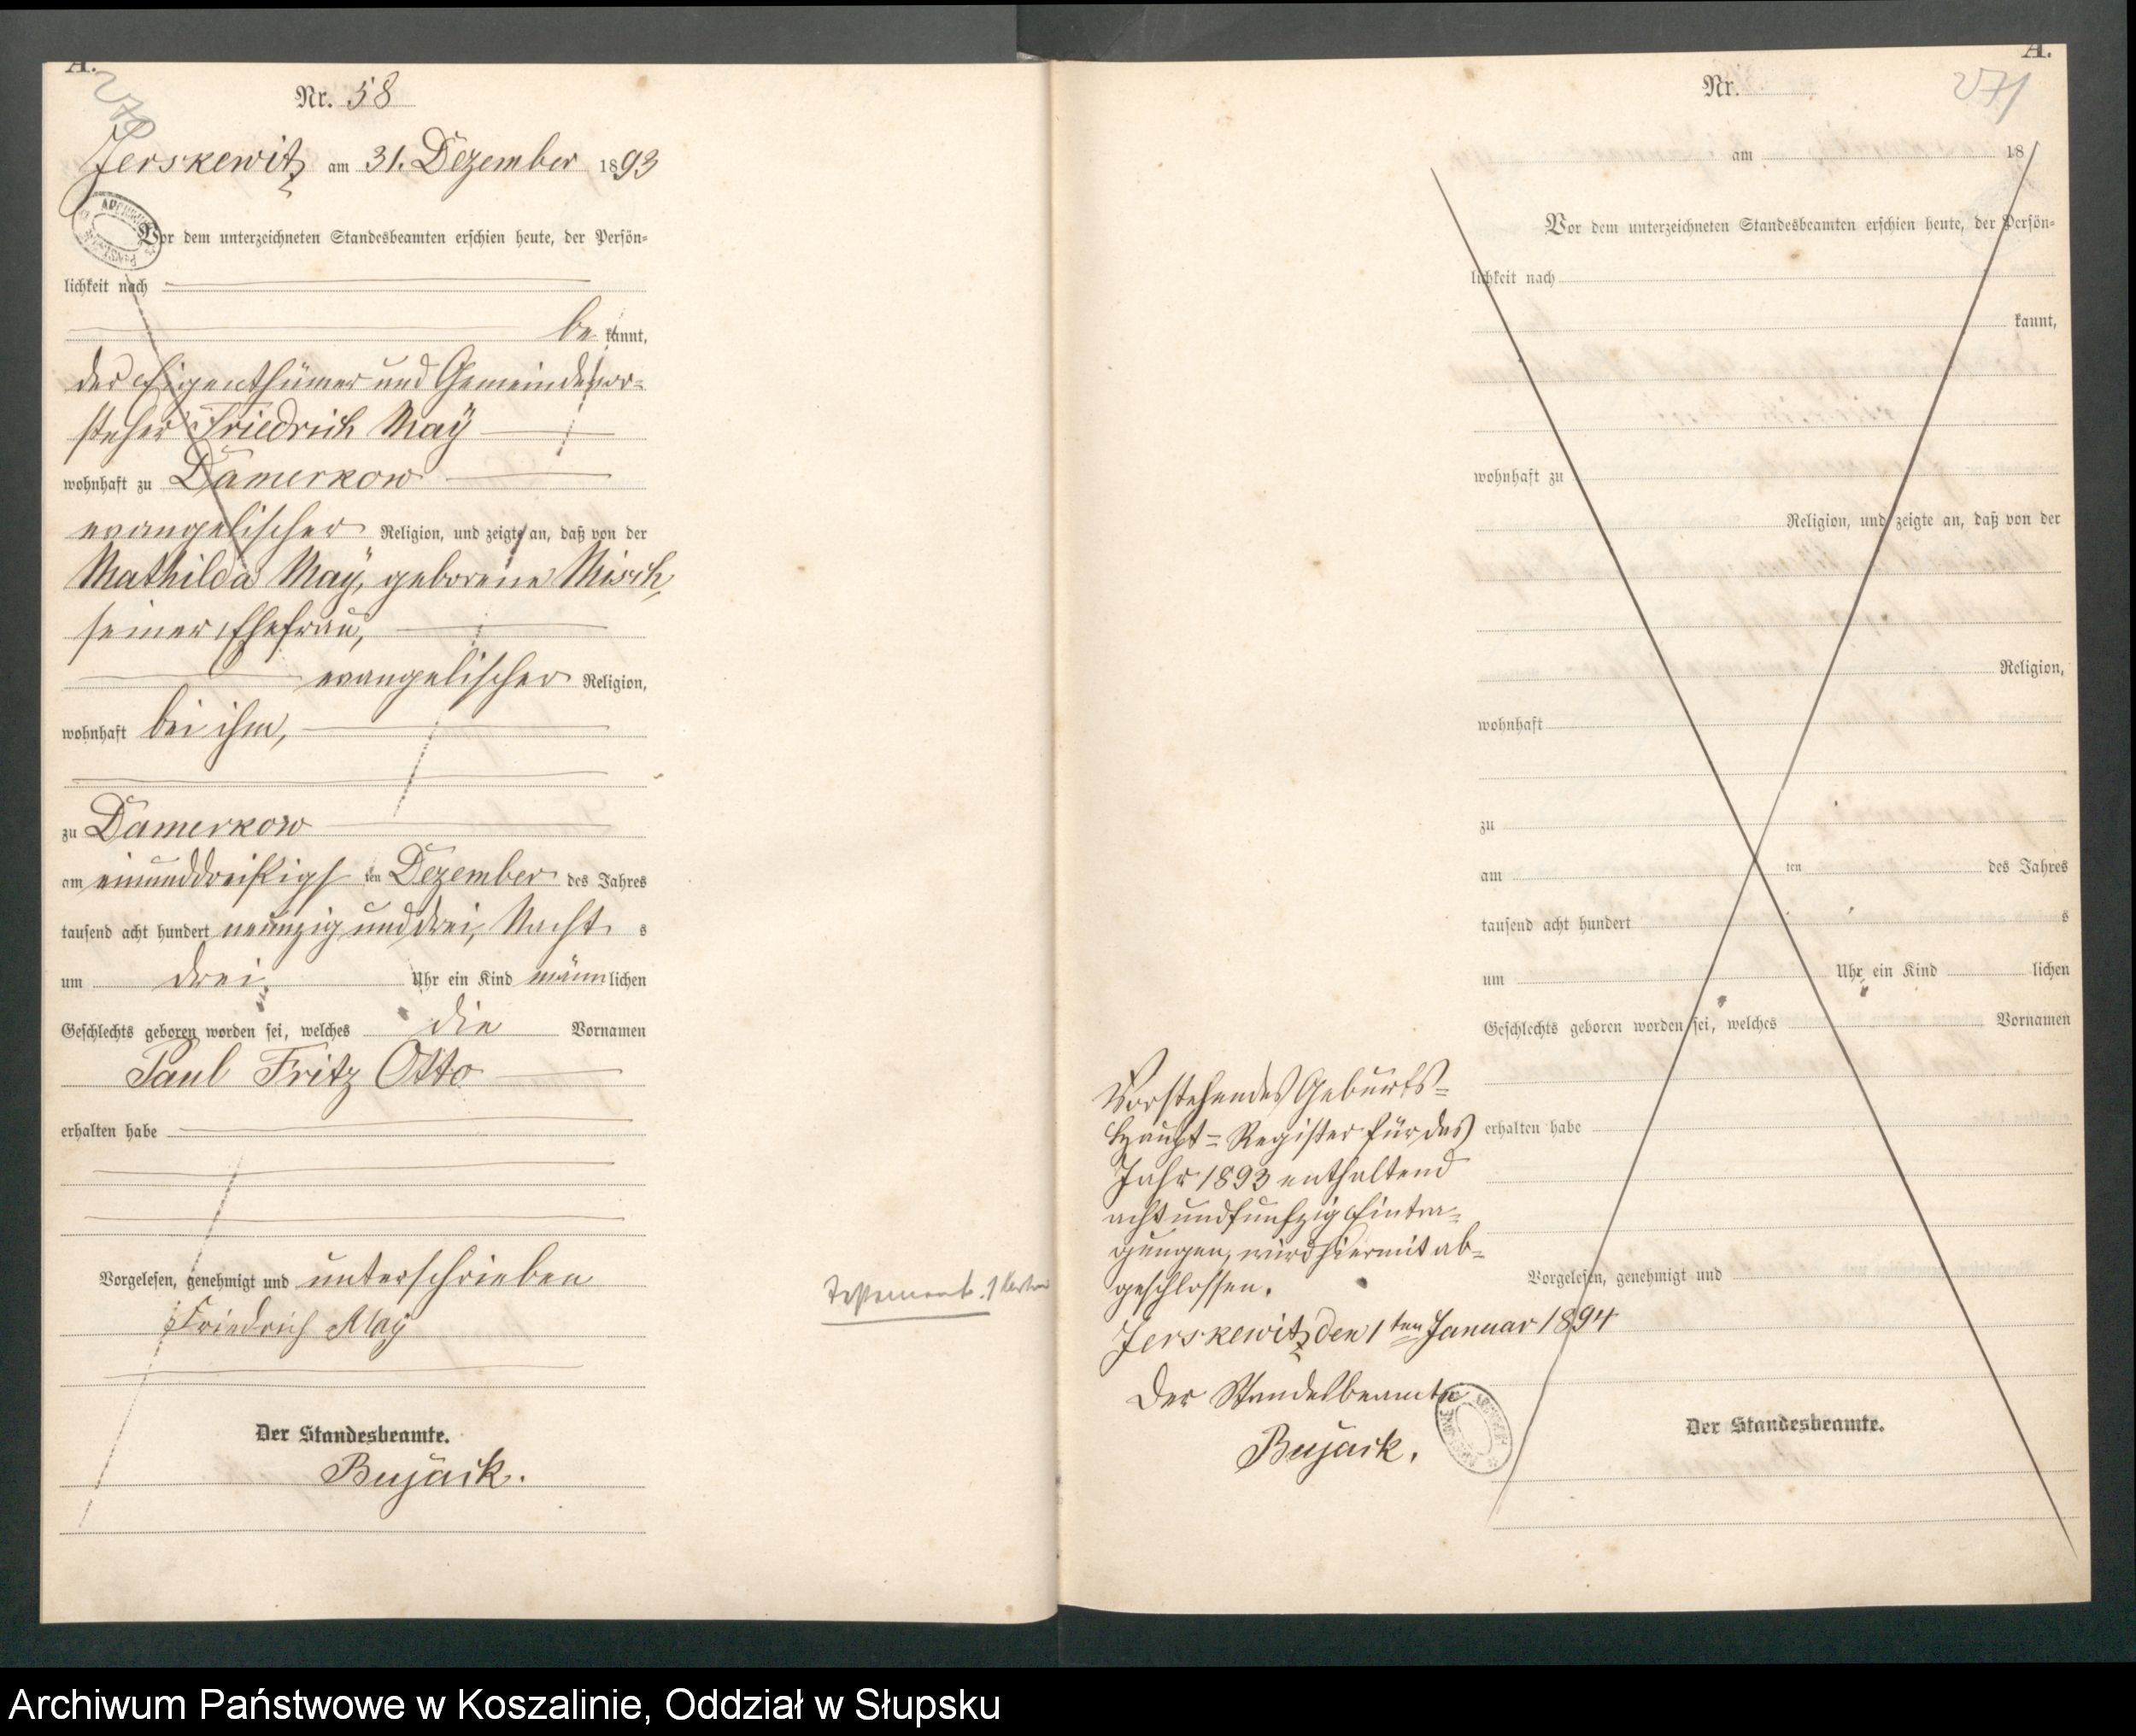 A.
270
Nr. 58
Jerskewitz am 31. Dezember 1893
Vor dem unterzeichneten Standesbeamten erschien heute, der Persön-
lichkeit nach
be kannt,
der Eigenthümer und Gemeindevor-
steher Friedrich Maÿ
wohnhaft zu Damerkow
evangelischer Religion, und zeigte an, daß von der
Mathilda Maÿ, geborene Misch,
seiner Ehefrau,
evangelischer Religion,
wohnhaft bei ihm,
zu Damerkow
am einunddreißigsten Dezember des Jahres
tausend acht hundert neunzig und drei, Nachts
um drei Uhr ein Kind männlichen
Geschlechts geboren worden sei, welches die Vornamen
Paul Fritz Otto
erhalten habe
Vorgelesen, genehmigt und unterschrieben
Friedrich Maÿ
Der Standesbeamte.
Bujack.
A.
271
Nr.
am 18
Vor dem unterzeichneten Standesbeamten erschien heute, der Persön-
lichkeit nach
kannt,
wohnhaft zu
Religion, und zeigte an, daß von der
Religion,
wohnhaft
zu
am ten des Jahres
tausend acht hundert s
um Uhr ein Kind lichen
Geschlechts geboren worden sei, welches Vornamen
erhalten habe
Vorgelesen, genehmigt und
Der Standesbeamte.
Vorstehendes Geburts-
Haupt-Register für das
Jahr 1893 enthaltend
acht und funfzig Eintra-
gungen, wird hiermit ab-
geschlossen.
Jerskewitz den 1ten Januar 1894
Der Standesbeamte
Bujack.
Archiwum Państwowe w Koszalinie, Oddział w Słupsku